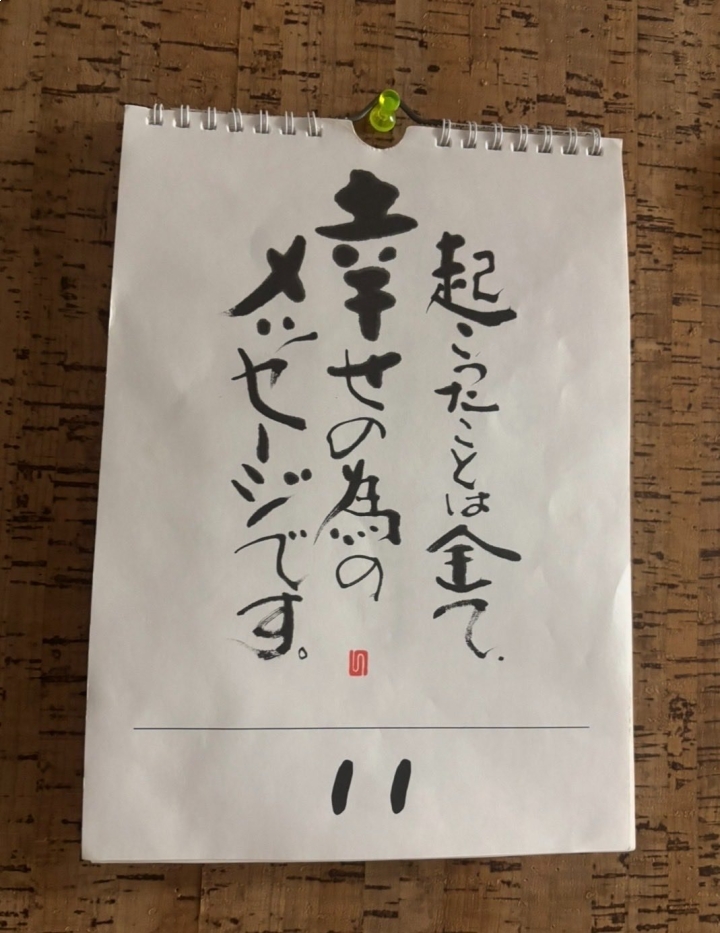 起こったことは全て、
幸せの為の
メッセージです。
11